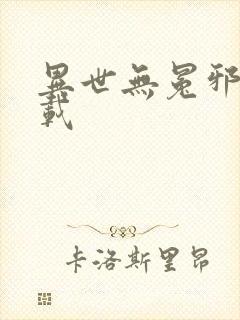 異世無冕邪
載
卡洛斯里昂